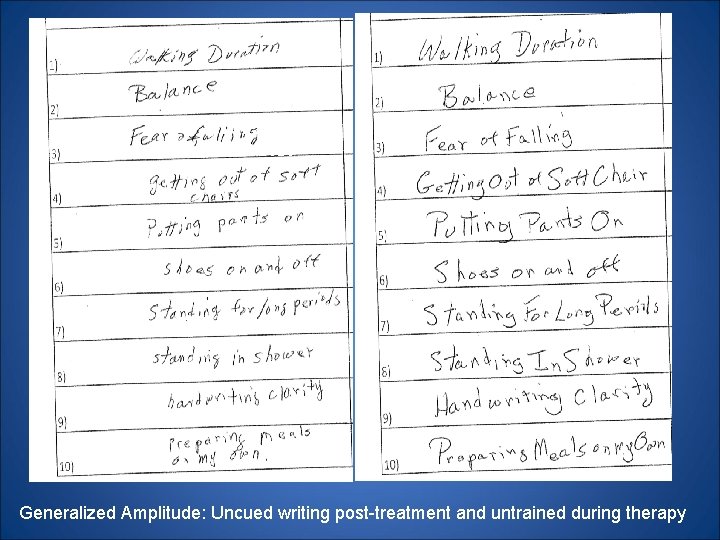 1) Walking Duration
2) Balance
3) Fear of faliing
4) getting out of soft
chairs
5) Putting pants on
6) shoes on and off
7) Standing for long periods
8) standing in shower
9) handwriting clarity
10) Preparing meals
on my own.
1) Walking Duration
2) Balance
3) Fear of Falling
4) Getting Out of Soft Chair
5) Putting Pants On
6) Shoes on and off
7) Standing For Long Periods
8) Standing In Shower
9) Handwriting Clarity
10) Preparing Meals on my Own
Generalized Amplitude: Uncued writing post-treatment and untrained during therapy